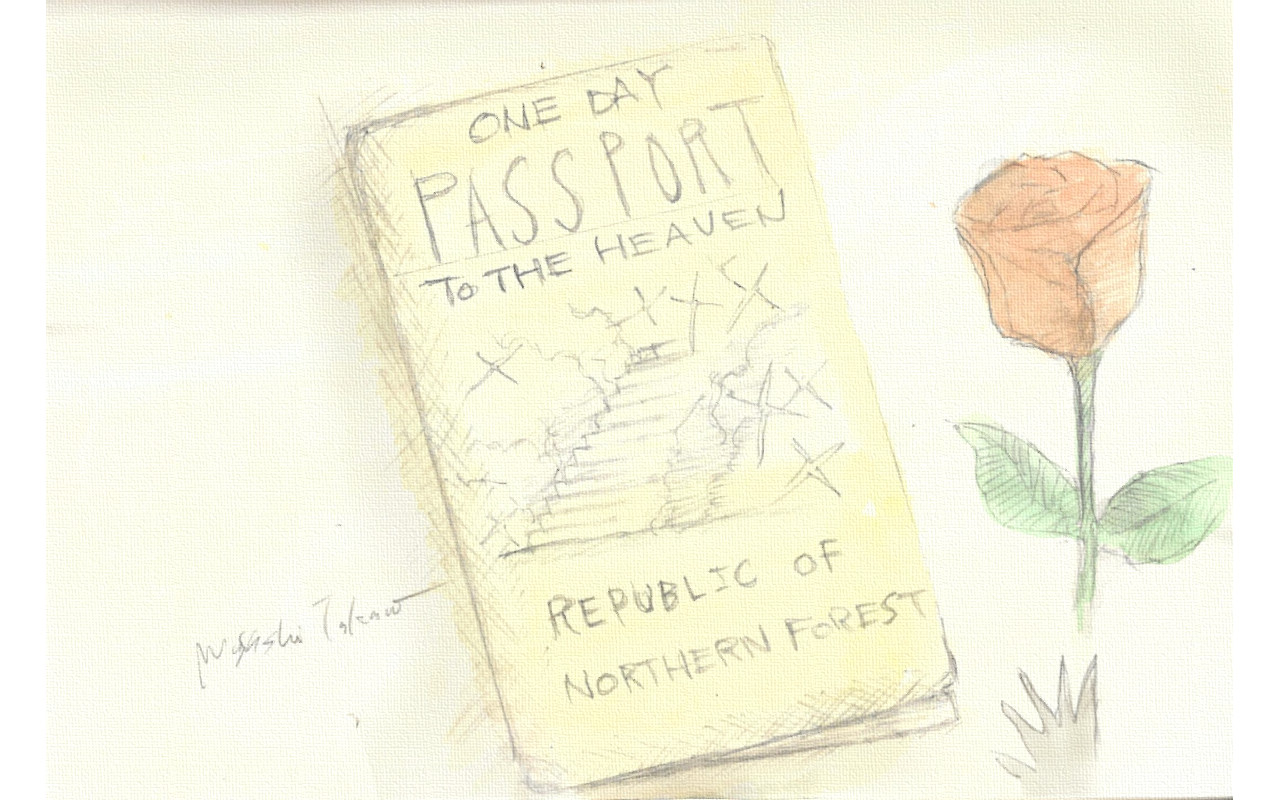 ONE DAY
PASSPORT
TO THE HEAVEN
REPUBLIC OF
NORTHERN FOREST